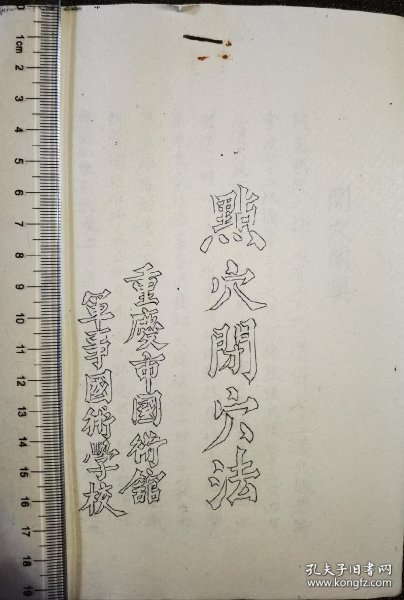 點穴閉穴法
重慶市國術館
軍事國術學校
1cm 2 3 4 5 6 7 8 9 10 11 12 13 14 15 16 17 18 19
孔夫子旧书网
www.kongfz.com